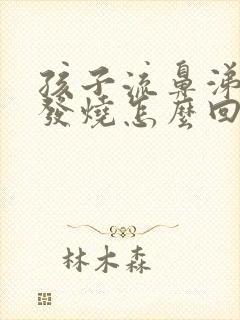 孩子流鼻涕
發燒怎麼回
林木森